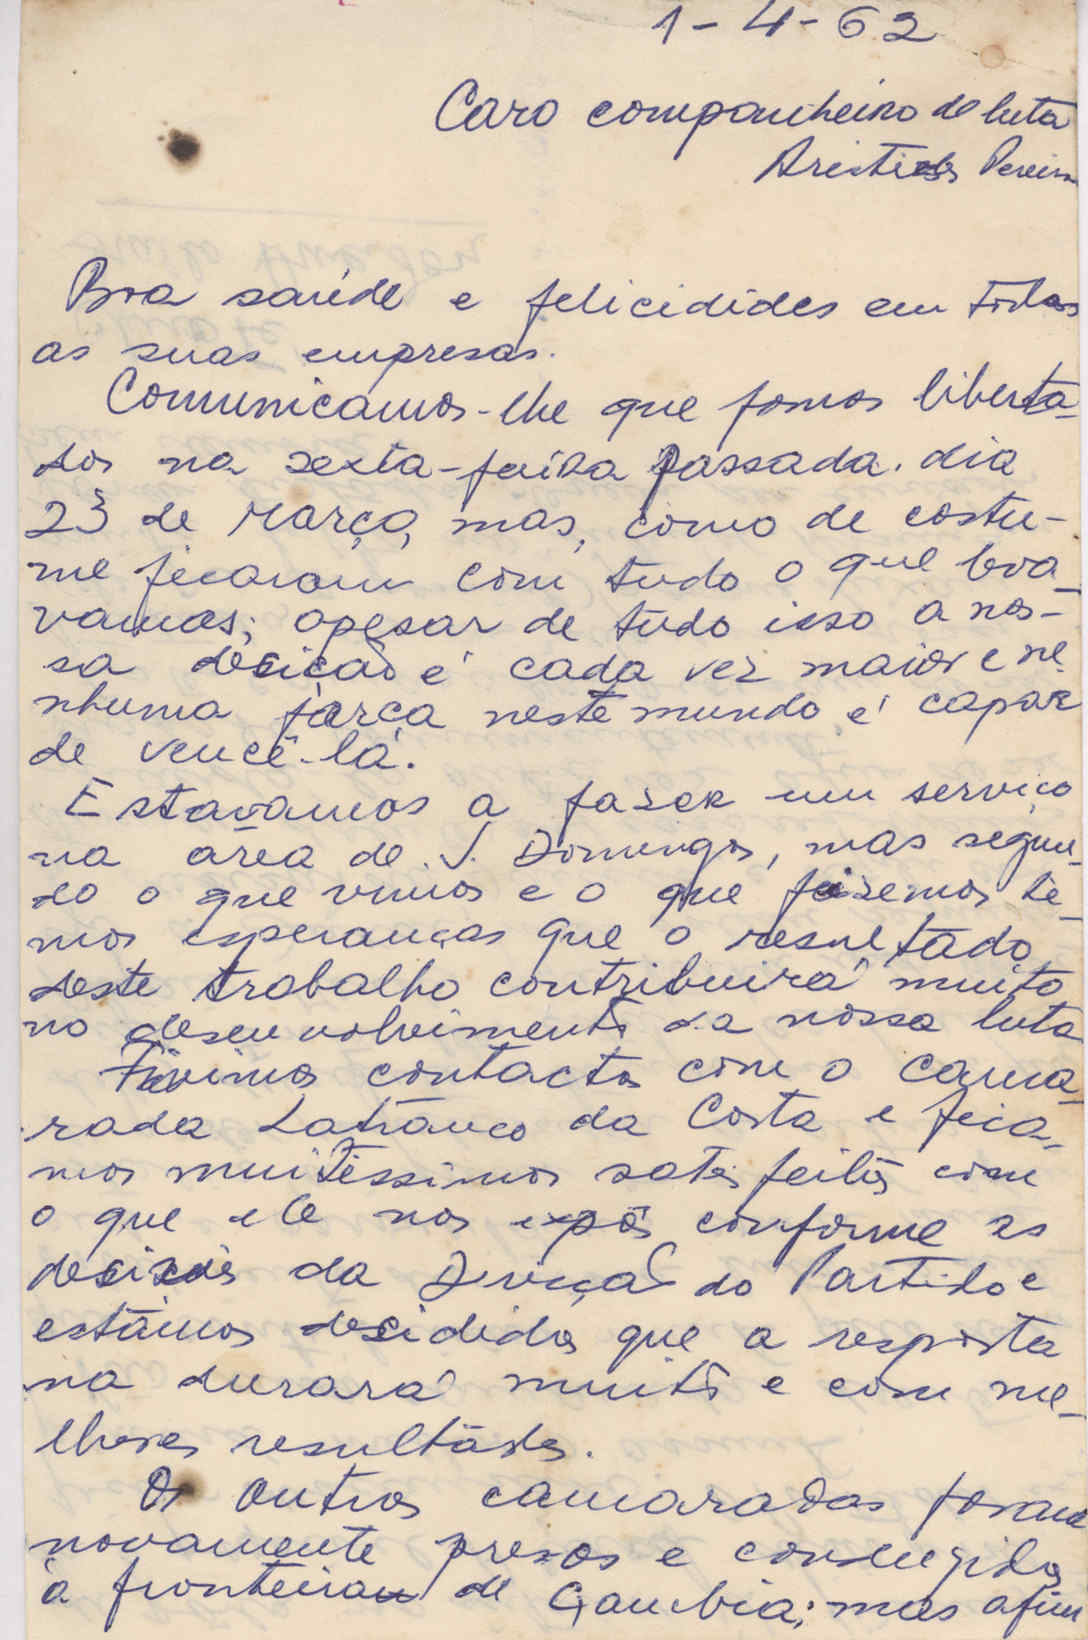 1-4-62
Caro companheiro de luta
Aristides Pereira
Boa saúde e felicidides em todas
as suas empresas.
Comunicamos-lhe que fomos liberta-
dos na sexta-feira passada. dia
23 de Março, mas, como de costu-
me ficaram com tudo o que leva-
vamos; apesar de tudo isso a nos-
sa decisão é cada vez maior e ne-
nhuma força neste mundo é capaz
de vencê-la.
Estavamos a fazer um serviço
na área de S. Domingos, mas segun-
do o que vimos e o que fizemos te-
mos esperanças que o resultado
deste trabalho contribuirá muito
no desenvolvimento da nossa luta
Tivimos contactos com o cama-
rada Lafranco da Costa e fica-
mos muitissimos satisfeitos com
o que ele nos expôs conforme as
decisões da Direcção do Partido e
estámos decididos que a resposta
na durará muito e com me-
lhores resultados.
Os outros camaradas foram
novamente presos e conduzidos
à fronteira de Gambia; mas afim